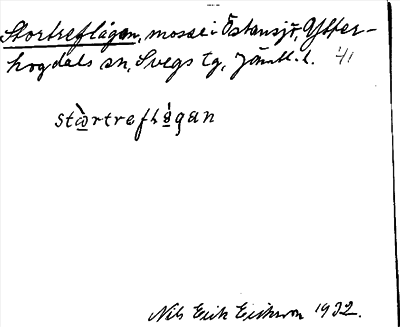 Stortreflågan, mosse i Östansjö, Ytter-
hogdals sn, Svegs tg, Jämtl. l. 41
stòrtreflågan
Nils Erik Eriksson 1932.